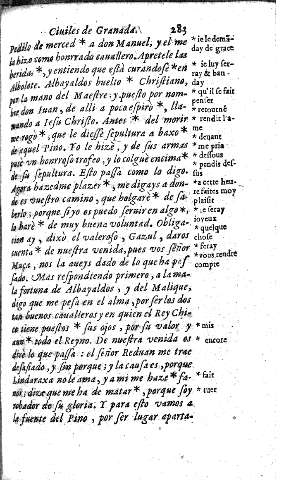 Ciuiles de Granada. 283
Pedilo de merced * a don Manuel, y el me
la hizo como honrrado cauallero. Apretele las
heridas *, y entiendo que està curandose * en
Albolote. Albayaldos buelto * Christiano,
por la mano del Maestre: y puesto por nombre
don Iuan, de alli a poco espirò *, llamando
a Iesus Christo. Antes * del morir
me rogò *, que le diesse sepultura a baxo *
de aquel Pino. Yo le hizè, y de sus armas
puse vn honroso trofeo, y lo colguè encima *
de su sepultura. Esto passa como lo digo.
Agora hazedme plazer *, me digays a donde
es vuestro camino, que holgarè * de saberlo;
porque si yo os puedo seruir en algo *,
lo harè * de muy buena voluntad. Obligacion
ay, dixo el valeroso, Gazul, daros
cuenta * de nuestra venida, pues vos señor
Muça, nos la aueys dado de lo que ha passado.
Mas respondiendo primero, a la mala
fortuna de Albayaldos, y del Malique,
digo que me pesa en el alma, por ser los dos
tan buenos caualleros y en quien el Rey Chico
tiene puestos * sus ojos, por su valor y
aun * todo el Reyno. De nuestra venida os
dirè lo que passa: el señor Reduan me trae
desafiado, y sin porque; y la causa es, porque
Lindaraxa no le ama, y a mi me haze * fauor;
dize que me ha de matar *, porque soy
robador de su gloria. Y para esto vamos a
la fuente del Pino, por ser lugar aparta-
* ie le demãday
de grace
* ie luy serray
& banday
* qu'il se fait
penser
* retourné
* rendit l'ame
* deuant
* me pria
* dessous
* pendis dessus
* a cette heure
faites moy
plaisir
* ie seray
ioyeux
* quelque
chose
* feray
* vous rendre
compte
* mis
* encore
* fait
* tuer